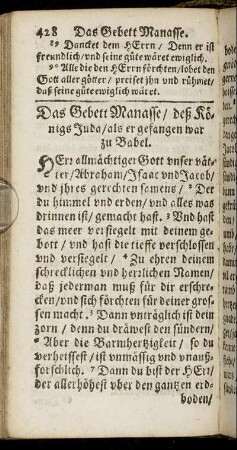 428 Das Gebett Manasse.
89 Dancket dem HErrn / Denn er ist
freundlich / und seine güte wäret ewiglich.
90 Alle die den HErrn förchten / lobet den
Gott aller götter / preiset jhn und rühmet /
daß seine güte ewiglich wäret.
Das Gebett Manasse / deß Kö-
nigs Juda / als er gefangen war
zu Babel.
HErr allmächtiger Gott vnser vät-
ter / Abraham / Isaac vnd Jacob /
vnd jhres gerechten samens / 2 Der
du himmel vnd erden / vnd alles was
drinnen ist / gemacht hast. 3 Vnd hast
das meer versiegelt mit deinem ge-
bott / vnd hast die tieffe verschlossen
vnd versiegelt / 4 Zu ehren deinem
schrecklichen vnd herzlichen Namen /
daß jederman muß für dir erschre-
cken / vnd sich förchten für deiner gros-
sen macht. 5 Dann vnträglich ist dein
zorn / denn du dräwest den sündern /
6 Aber die Barmhertzigkeit / so du
verheissest / ist vnmässig vnd vnauß-
forschlich. 7 Dann du bist der HErr /
der allerhöhest vber den gantzen erd-
boden /